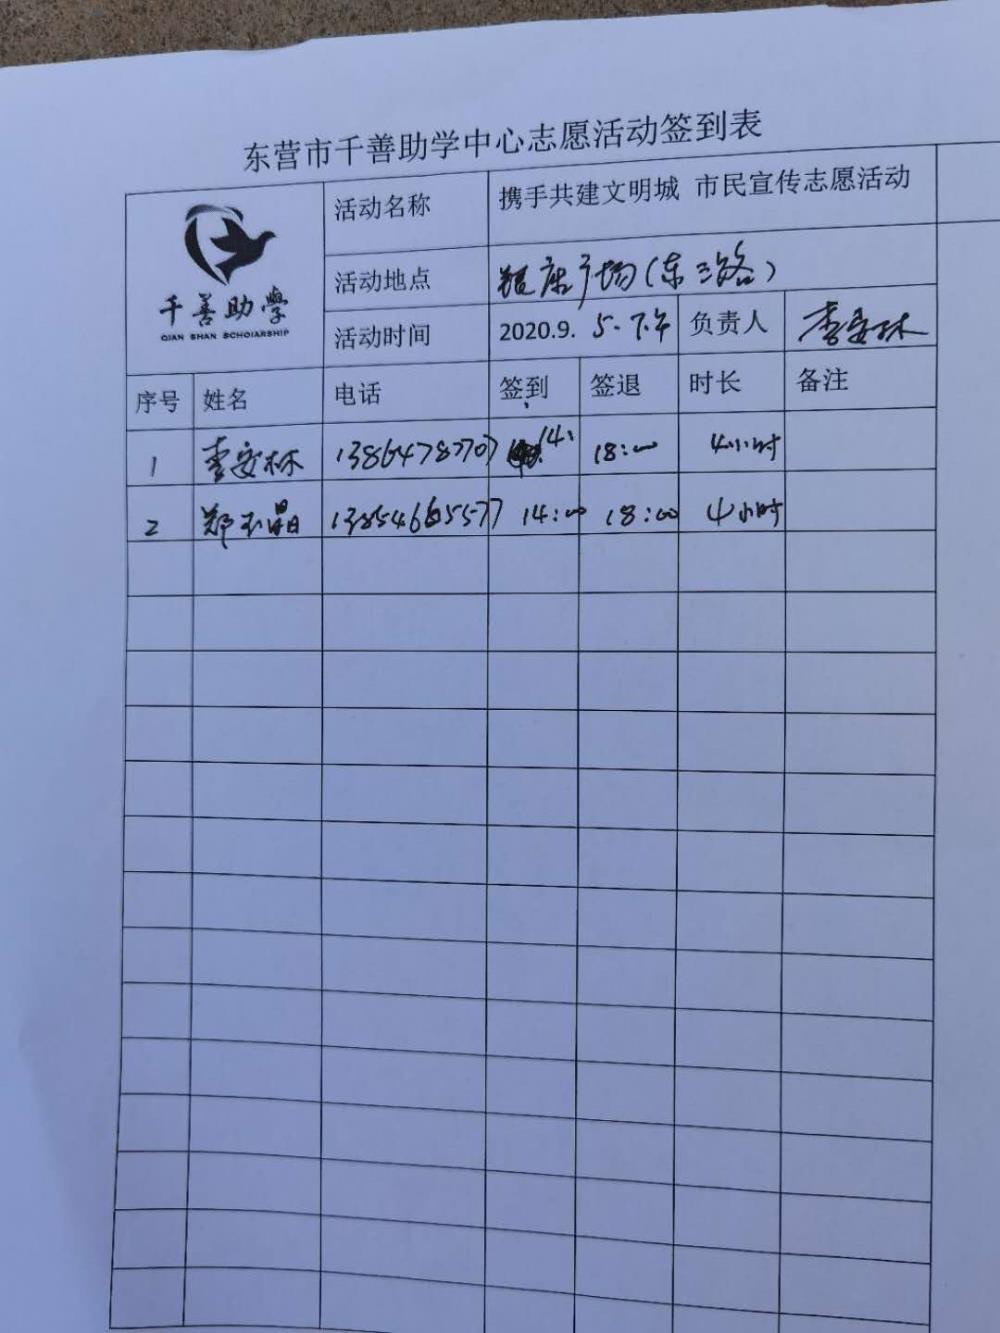 东营市千善助学中心志愿活动签到表
千善助學
QIAN SHAN SCHOLARSHIP
活动名称 携手共建文明城 市民宣传志愿活动
活动地点 广场(东三路)
活动时间 2020.9. 5.下午 负责人 李安林
序号 姓名 电话 签到 签退 时长 备注
1 李安林 13864787707 14: 18:00 4小时
2 郑玉晶 13854665577 14:00 18:00 4小时